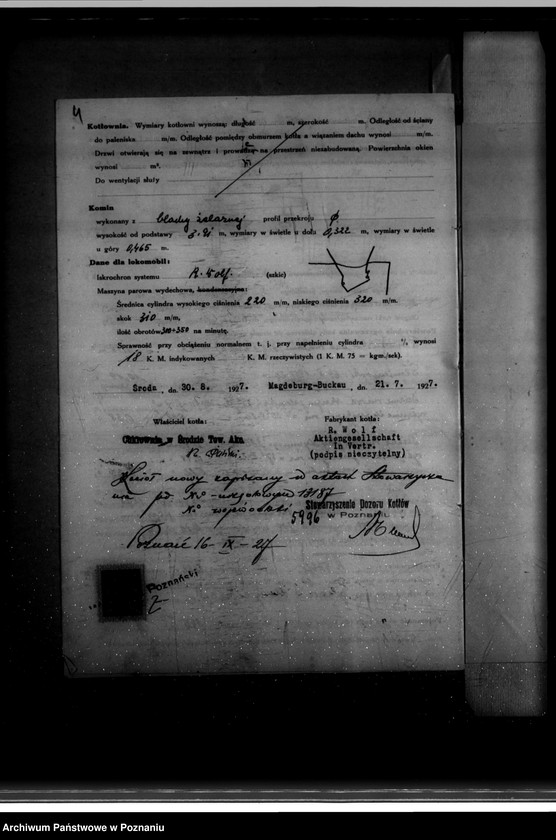 4
Kotłownia. Wymiary kotłowni wynoszą: długość m, szerokość m. Odległość od ściany
do paleniska m/m. Odległość pomiędzy obmurzem kotła a wiązaniem dachu wynosi m/m.
Drzwi otwierają się na zewnątrz i prowadzą na przestrzeń niezabudowaną. Powierzchnia okien
wynosi m².
Do wentylacji służy
Komin
wykonany z blachy żelaznej profil przekroju φ
wysokość od podstawy m, wymiary w świetle u dołu 0,322 m, wymiary w świetle
u góry 0,465 m.
Dane dla lokomobil:
Iskrochron systemu R. Wolf. (szkic)
Maszyna parowa wydechowa, kondensacyjna:
Średnica cylindra wysokiego ciśnienia 220 m/m, niskiego ciśnienia 320 m/m.
skok 310 m/m,
ilość obrotów 300÷350 na minutę.
Sprawność przy obciążeniu normalnem t. j. przy napełnieniu cylindra %, wynosi
18 K. M. indykowanych K. M. rzeczywistych (1 K. M. 75 = kgm./sek).
Środa, dn. 30. 8. 1927. Magdeburg-Buckau, dn. 21. 7. 1927.
Właściciel kotła: Fabrykant kotła:
Cukrownia w Środzie Tow. Akc. R. Wolf
Aktiengesellschaft
in Vertr.
(podpis nieczytelny)
Kocioł nowy zapisany w aktach Stowarzyszenia
pod No 13187
No wojewódzki 5996
Stowarzyszenie Dozoru Kotłów
w Poznaniu.
Poznań 16 - IX - 27
Poznański
Archiwum Państwowe w Poznaniu